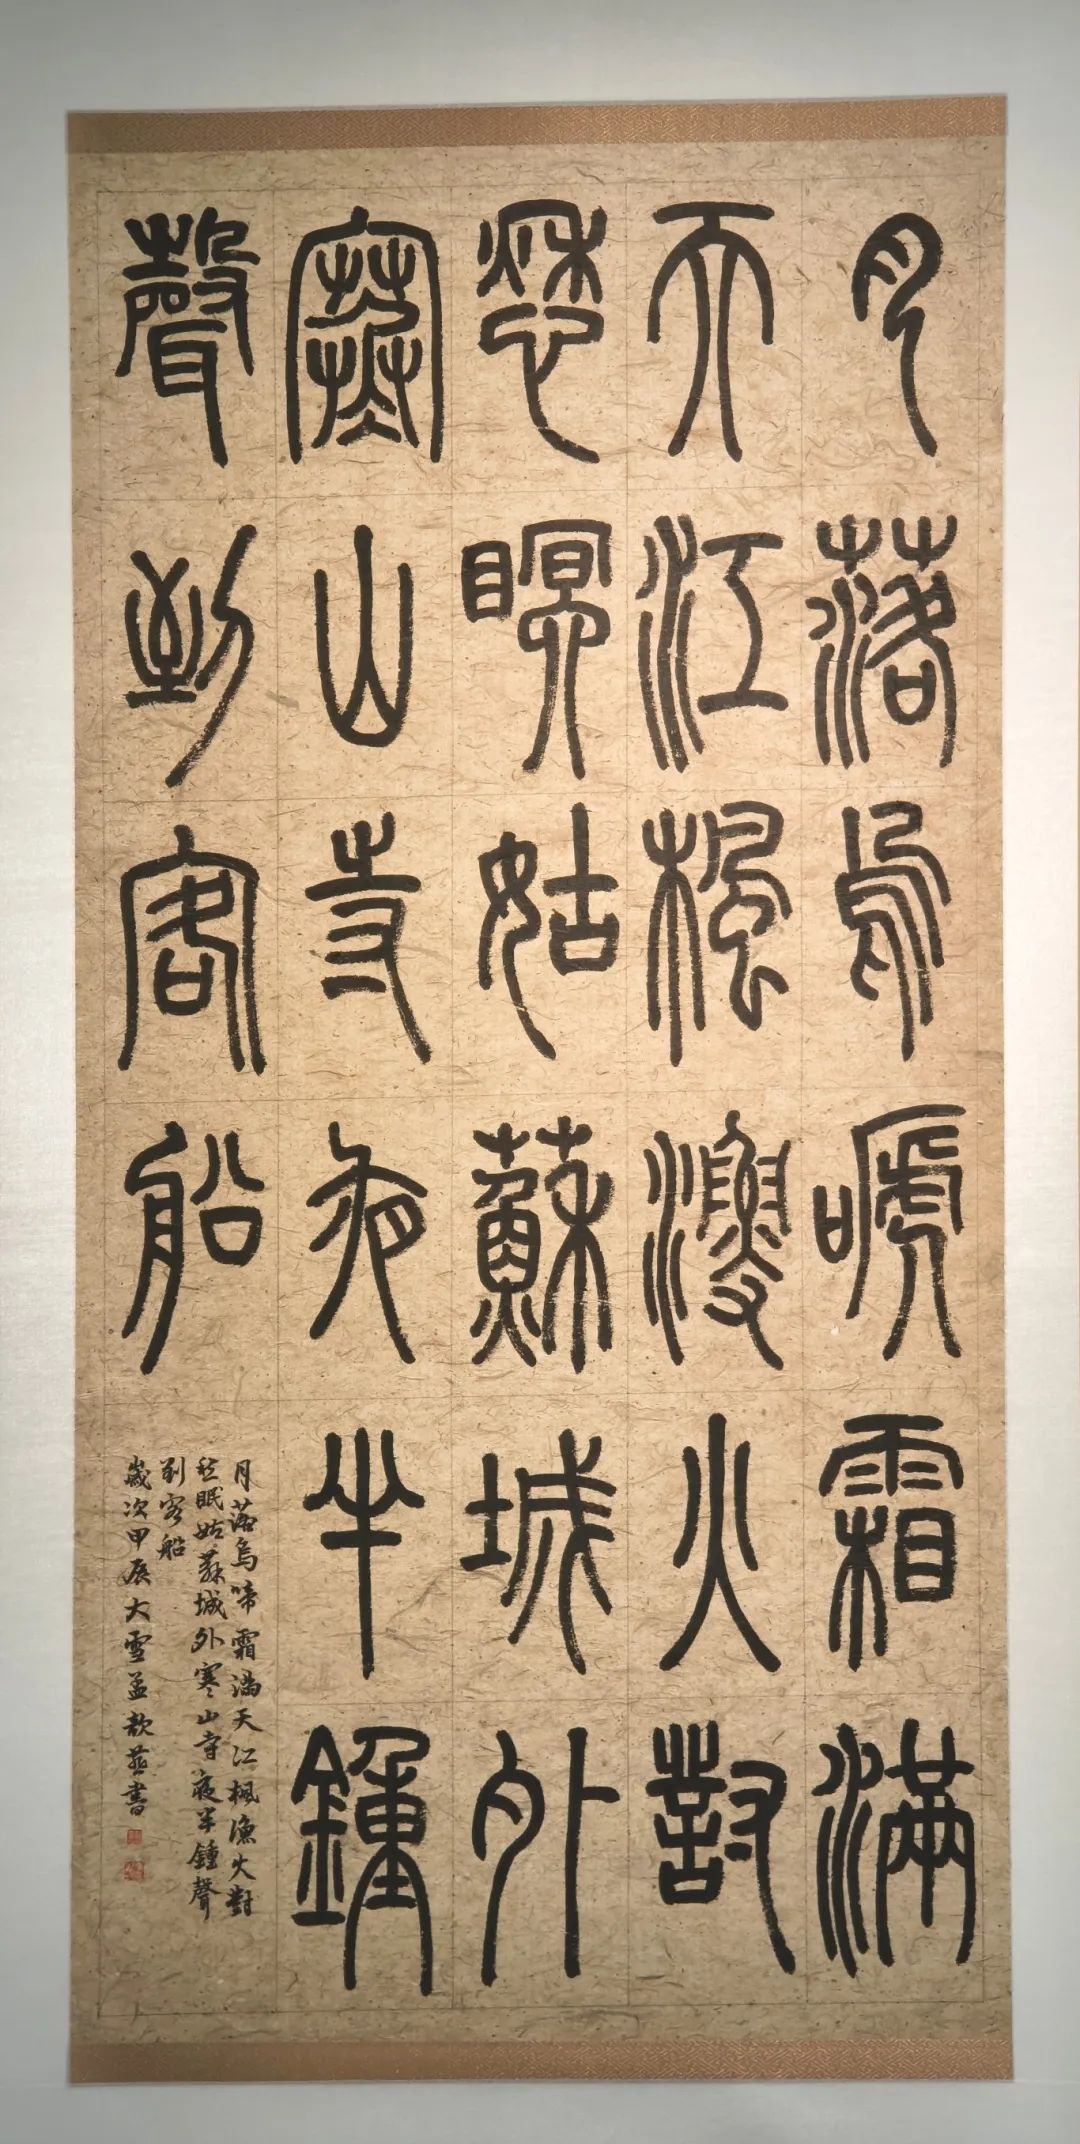 月落烏嗁霜滿
天江楓漁火對
愁瞑姑蘇城外
寒山寺夜半鐘
聲到客船
月落烏啼霜滿天江楓漁火對
愁眠姑蘇城外寒山寺夜半鍾聲
到客船
歲次甲辰大雪孟歆燕書